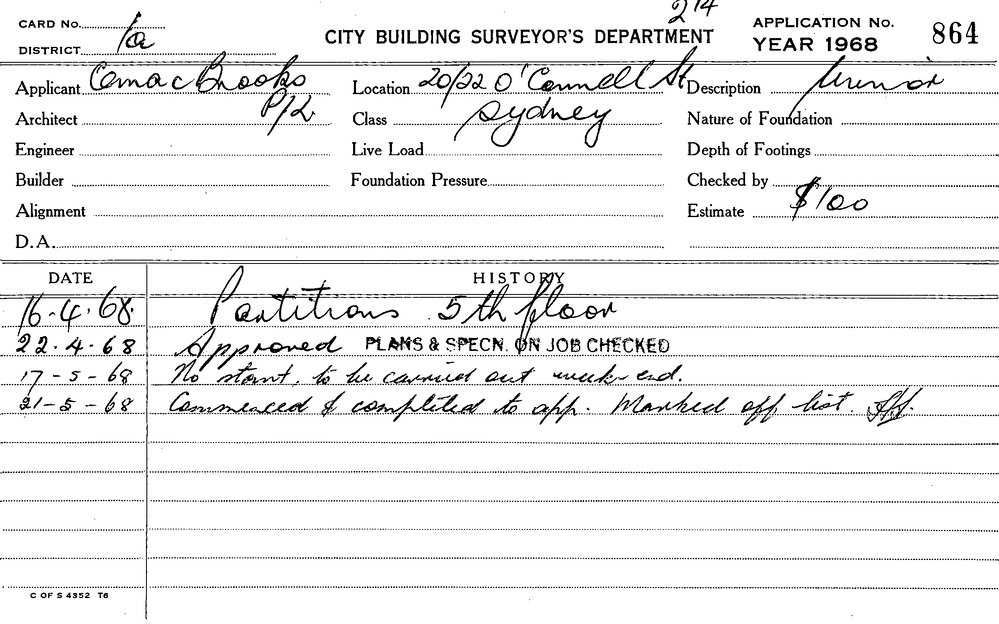 214
CARD No. APPLICATION No. 864
DISTRICT 1a CITY BUILDING SURVEYOR'S DEPARTMENT YEAR 1968
Applicant Comac Brooks Location 20/22 O'Connell St Description Minor
Architect P/L Class Sydney Nature of Foundation
Engineer Live Load Depth of Footings
Builder Foundation Pressure Checked by
Alignment Estimate $100
D.A.
DATE HISTORY
16.4.68. Partitions 5th floor
22.4.68 Approved PLANS & SPECN. ON JOB CHECKED
17-5-68 No start. to be carried out week end.
21-5-68 Commenced & completed to app. Marked off list.
C OF S 4352 T6